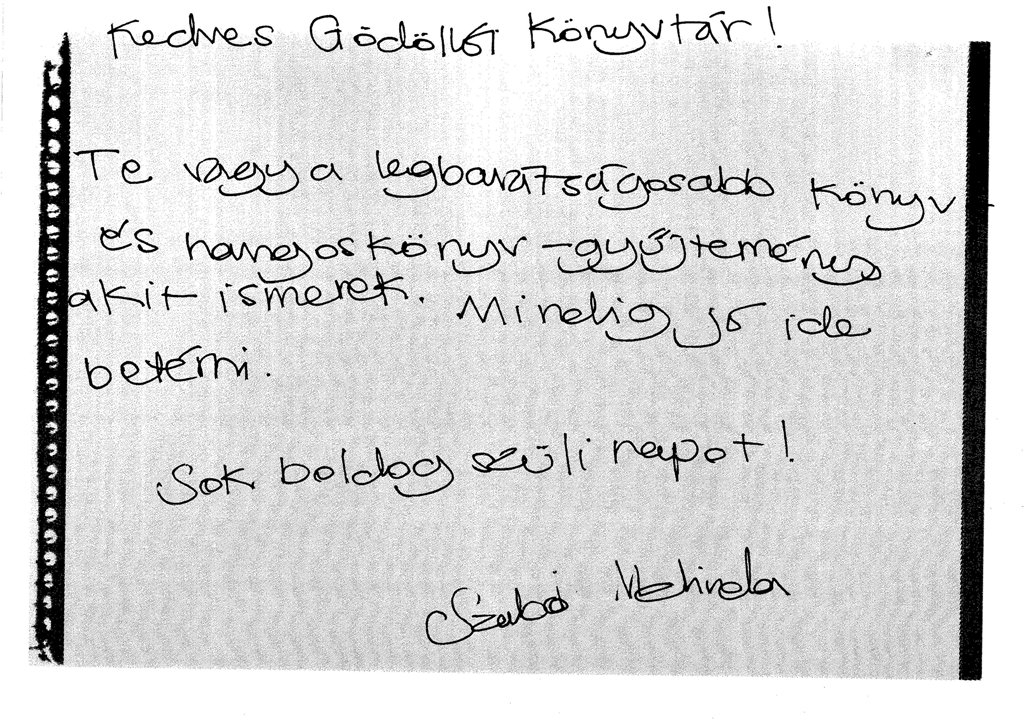 Kedves Gödöllői Könyvtár!
Te vagy a legbarátságosabb könyv
és hangoskönyv-gyűjtemény
akit ismerek. Mindig jó ide
betérni.
Sok boldog szüli napot!
Szabó